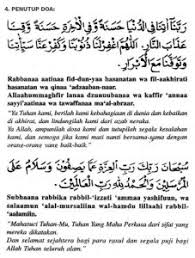 4. PENUTUP DOA:
رَبَّنَا آتِنَا فِي الدُّنْيَا حَسَنَةً وَفِي الْآخِرَةِ حَسَنَةً وَقِنَا
عَذَابَ النَّارِ اللَّهُمَّ اغْفِرْ لَنَا ذُنُوبَنَا وَكَفِّرْ عَنَّا
سَيِّئَاتِنَا وَتَوَفَّنَا مَعَ الْأَبْرَارِ
Rabbanaa aatinaa fid-dun-yaa hasanatan wa fil-aakhirati
hasanatan wa qinaa 'adzaaban-naar.
Allaahummaghfir lanaa dzunuubanaa wa kaffir 'annaa
sayyi'aatinaa wa tawaffanaa ma'al-abraar.
"Ya Tuhan kami, berilah kami kebahagiaan di dunia dan kebaikan
di akhirat, dan lindungilah kami dari adzab neraka.
Ya Allah, ampunilah dosa kami dan tutupilah segala kesalahan
kami, dan semoga kami mati bersama-sama dengan
orang-orang yang baik-baik".
سُبْحَانَ رَبِّكَ رَبِّ الْعِزَّةِ عَمَّا يَصِفُونَ وَسَلَامٌ عَلَى
الْمُرْسَلِينَ وَالْحَمْدُ لِلَّهِ رَبِّ الْعَالَمِينَ
Subhaana rabbika rabbil-'izzati 'ammaa yashifuun, wa
salaamun 'alal-mursaliina wal-hamdu lillaahi rabbil-
'aalamiin.
"Mahasuci Tuhan-Mu, Tuhan Yang Maha Perkasa dari sifat yang
mereka dikatakan.
Dan selamat sejahtera bagi para rasul dan segala puji bagi
Allah Tuhan seluruh alam".